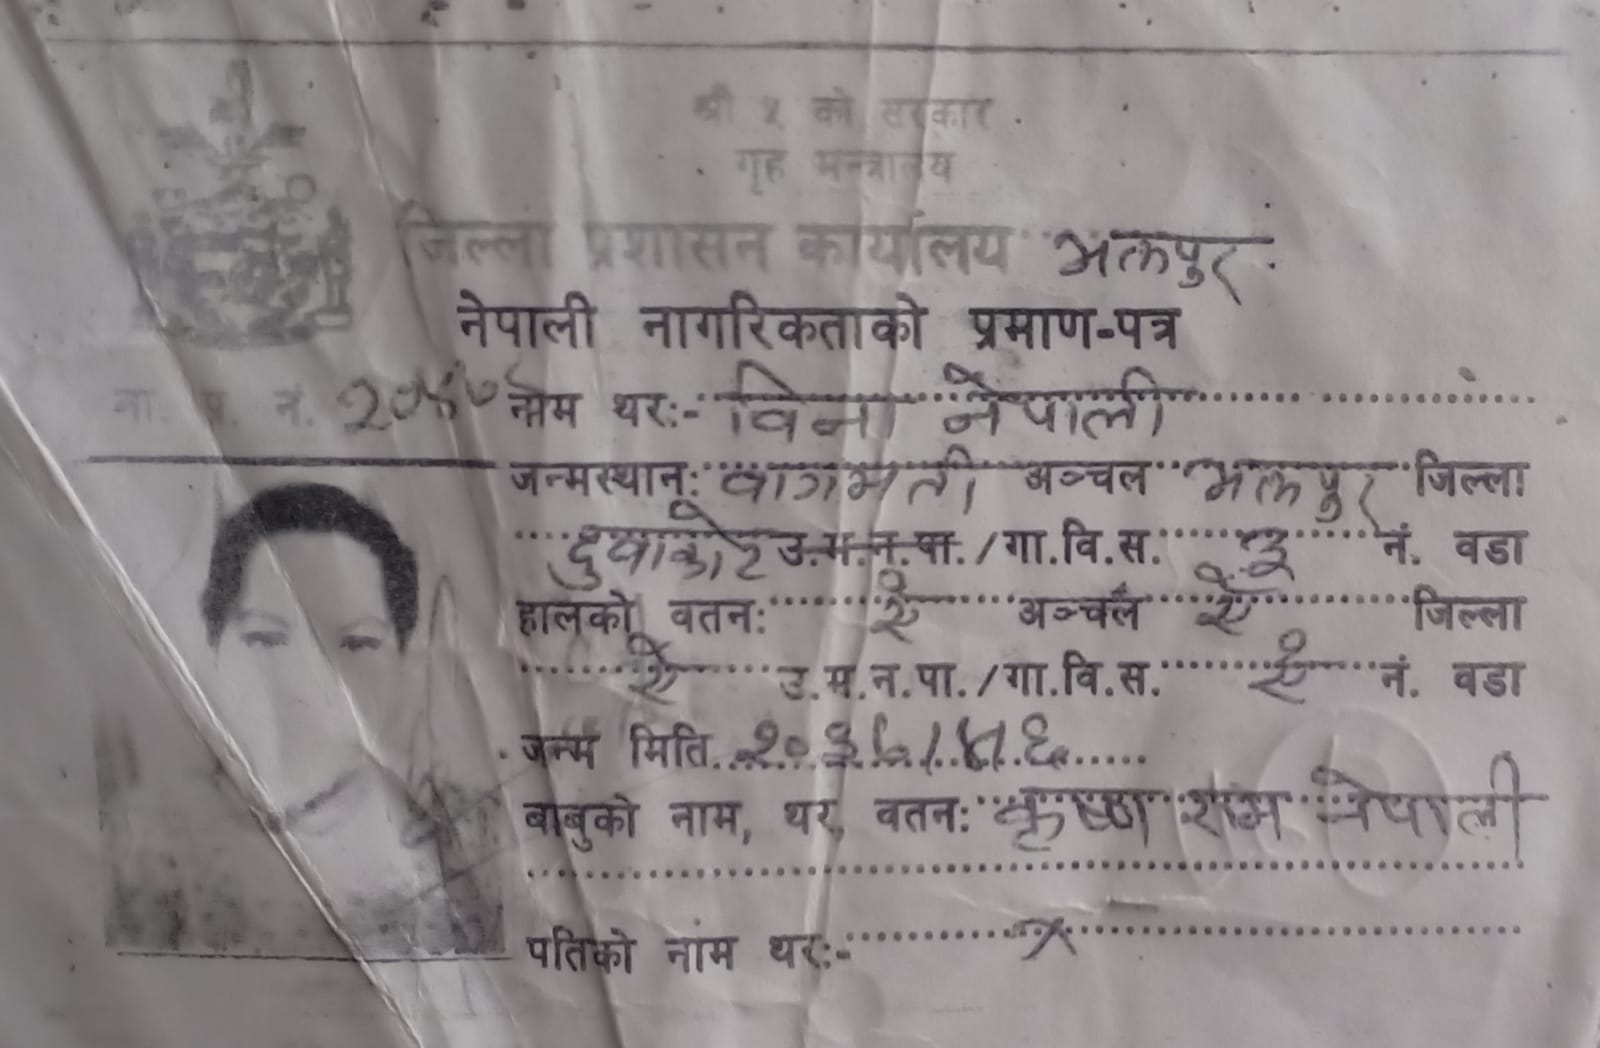 श्री ५ को सरकार
गृह मन्त्रालय
जिल्ला प्रशासन कार्यालय भक्तपुर
नेपाली नागरिकताको प्रमाण-पत्र
ना. प्र. नं. नाम थरः- विना नेपाली
जन्मस्थान: वागमती अञ्चल भक्तपुर जिल्ला
दुवाकोट उ.म.न.पा./गा.वि.स. ३ नं. वडा
हालको वतन: ऐं अञ्चल ऐं जिल्ला
ऐं उ.म.न.पा./गा.वि.स. ऐं नं. वडा
जन्म मिति
बाबुको नाम, थर, वतन: कृष्ण राम नेपाली
पतिको नाम थरः- ×